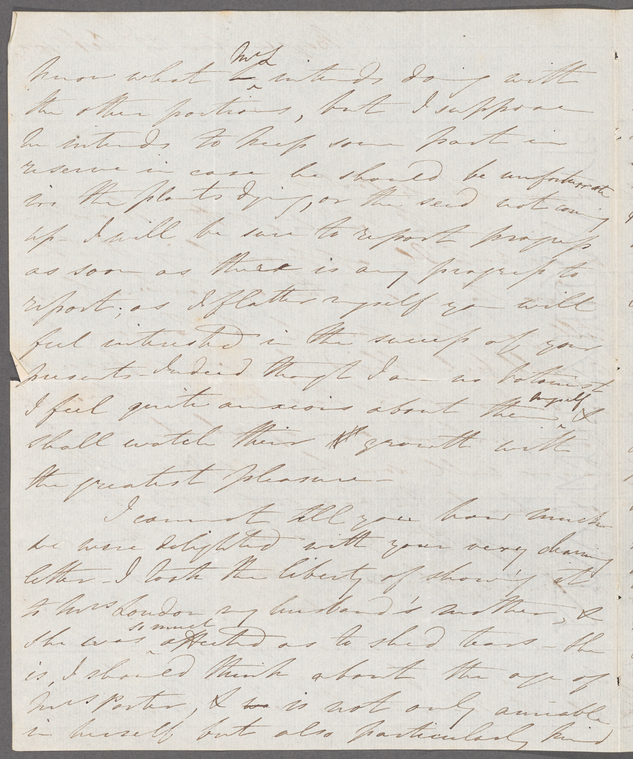 know what Mr L intends doing with
the other portions, but I suppose
he intends to keep some part in
reserve in case he should be unfortunate
in the plants dying, or the seed not coming
up. I will be sure to report progress
as soon as there is any progress to
report; as I flatter myself you will
feel interested in the success of your
presents. Indeed though I am no botanist
I feel quite anxious about them myself &
shall watch their growth with
the greatest pleasure –
I cannot tell you how much
we were delighted with your very charming
letter – I took the liberty of showing it
to Mrs Loudon my husband's mother, &
she was so much affected as to shed tears – she
is, I should think about the age of
Mrs Porter, & is not only amiable
in herself but also particularly kind